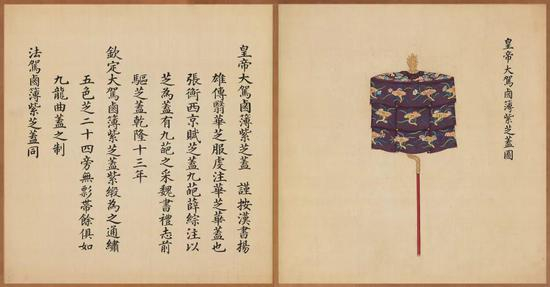 皇帝大駕鹵簿紫芝蓋圖
皇帝大駕鹵簿紫芝蓋 謹按漢書揚
雄傳翳華芝服虔注華芝華蓋也
張衡西京賦芝蓋九葩薛綜注以
芝為蓋有九葩之采魏書禮志前
驅芝蓋乾隆十三年
欽定大駕鹵簿紫芝蓋紫緞為之通繡
五色芝二十四旁無彩帶餘俱如
九龍曲蓋之制
法駕鹵簿紫芝蓋同